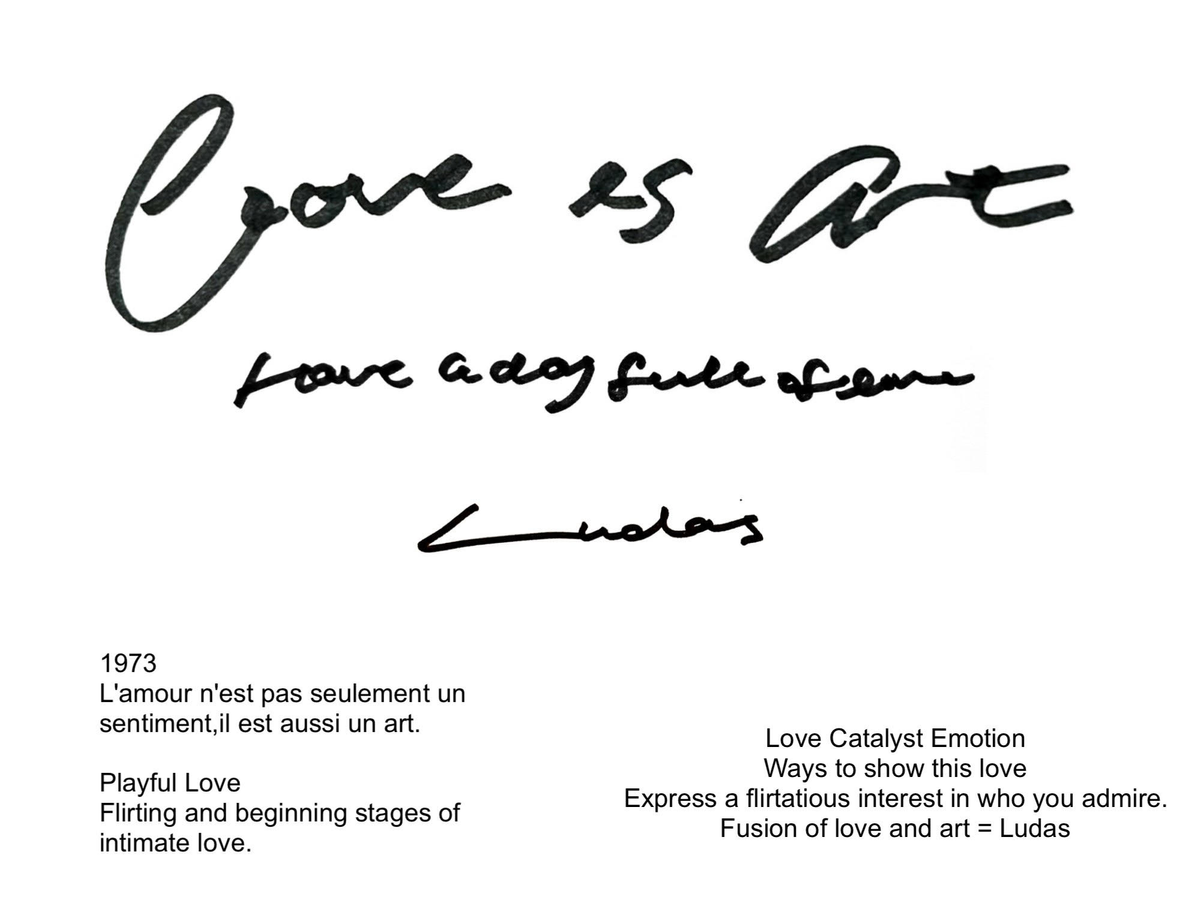 Love is Art
Have a day full of love
Ludas
1973
L'amour n'est pas seulement un
sentiment,il est aussi un art.
Playful Love
Flirting and beginning stages of
intimate love.
Love Catalyst Emotion
Ways to show this love
Express a flirtatious interest in who you admire.
Fusion of love and art = Ludas